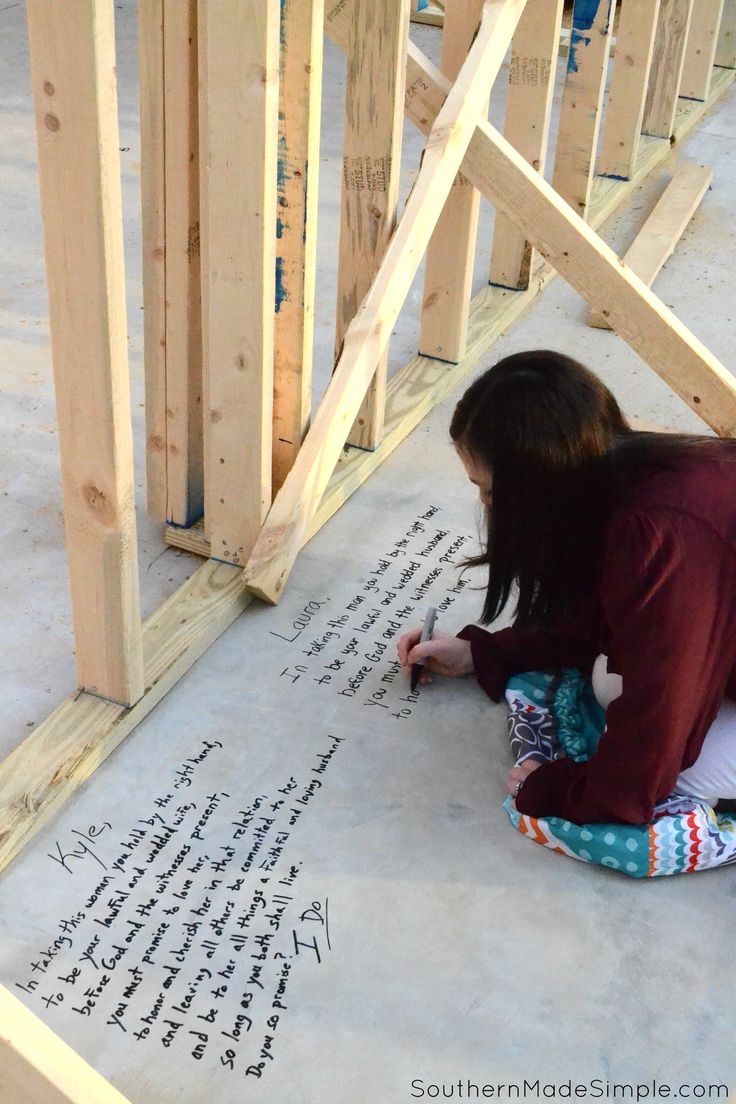 Laura,
In taking this man you hold by the right hand,
to be your lawful and wedded husband
before God and the witnesses present,
you must love him,
to ho
Kyle,
In taking this woman you hold by the right hand,
to be your lawful and wedded wife,
before God and the witnesses present,
you must promise to love her,
to honor and cherish her in that relation,
and leaving all others be committed to her
and be to her all things a faithful and loving husband
so long as you both shall live.
Do you so promise?
I Do
SouthernMadeSimple.com